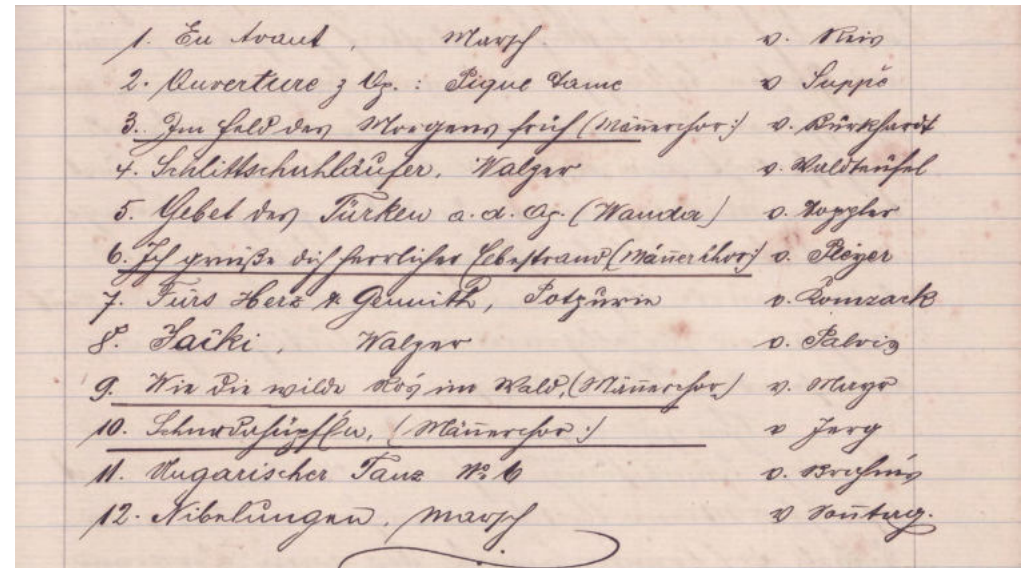 1. En Avant, Marsch. v. Reis
2. Ouverture z Op.: Pique Dame v Suppé
3. Im Feld des Morgens früh (Männerchor:) v. Burkhardt
4. Schlittschuhläufer, Walzer v. Waldteufel
5. Gebet des Türken a. d. Op. (Wanda) v. Doppler
6. Ich grüße dich herrlicher Ebestrand (Männerchor:) v. Pleyer
7. Fürs Herz & Gemüth, Potpurie v. Komzack
8. Jaïki, Walzer v. Palvis
9. Wie die wilde Ros im Wald, (Männerchor) v. Mayr
10. Schnadahüpfl'n, (Männerchor:) v Jerg
11. Ungarischer Tanz No 6 v. Brahms
12. Nibelungen, Marsch v Sontag.